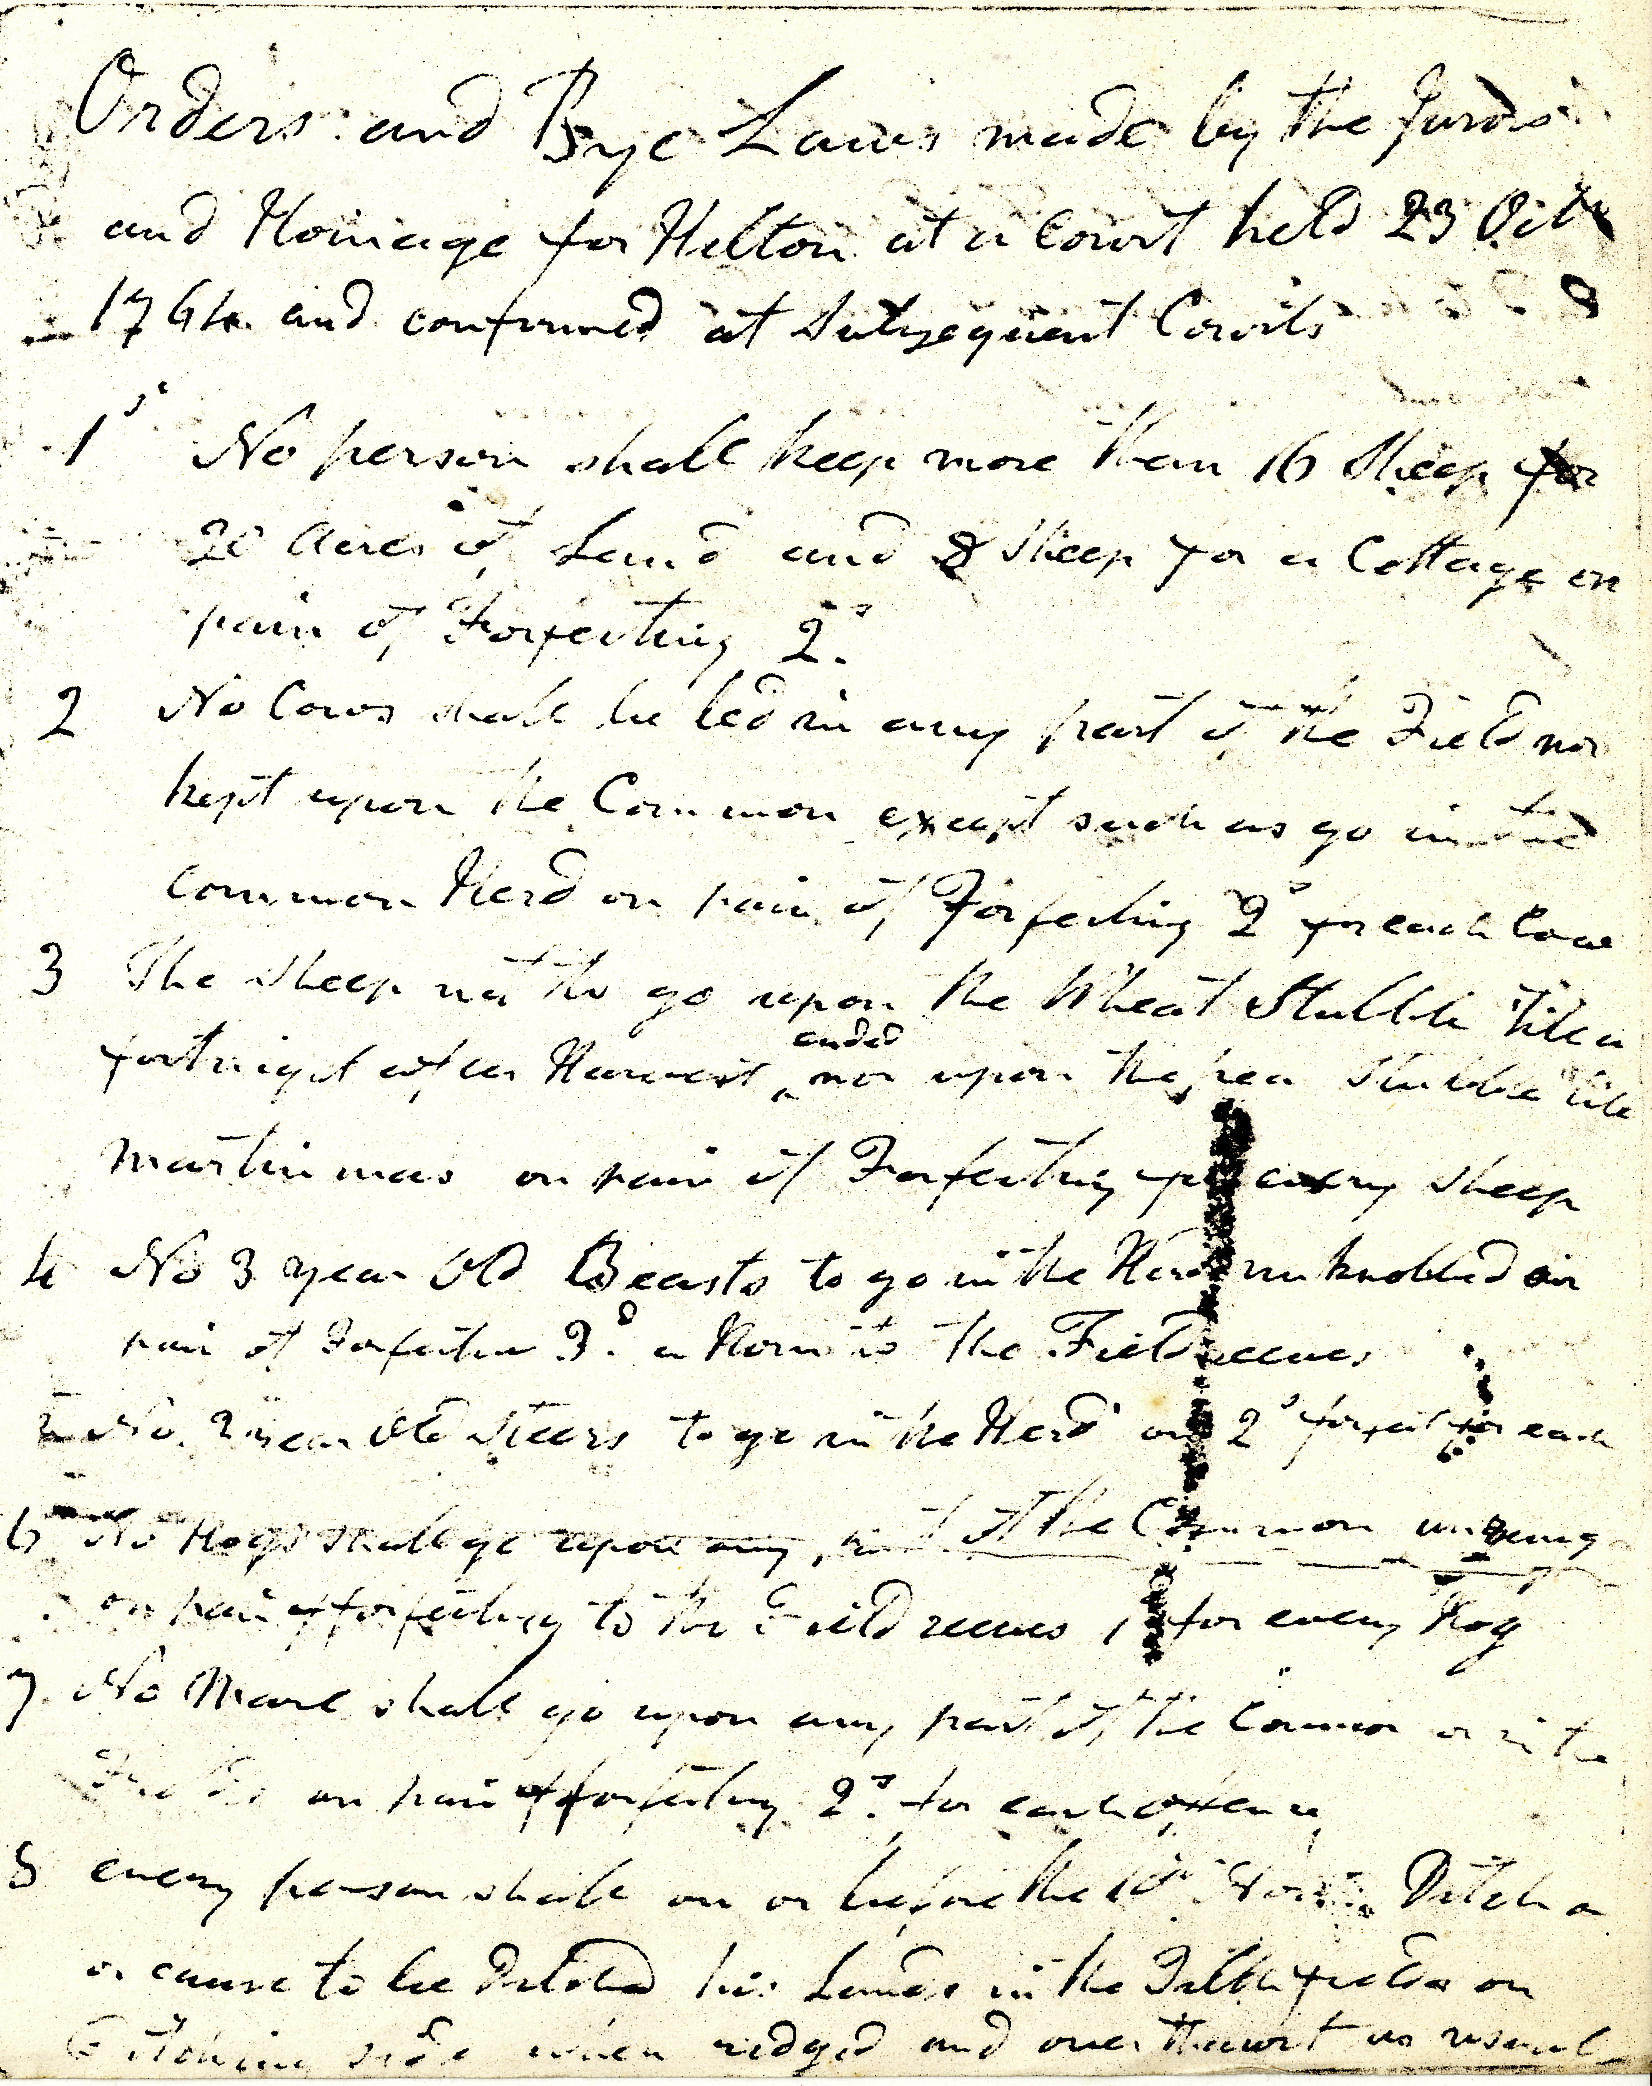 Orders and Bye Laws made by the Jurors
and Homage for Helton at a Court held 23 Octr
1764 and confirmed at Subsequent Courts
1st No person shall keep more than 16 Sheep for
20 Acres of Land and 8 Sheep for a Cottage on
pain of Forfeiting 2s.
2 No Cows shall be led in any part of the Field nor
kept upon the Common except such as go in the
common Herd on pain of Forfeiting 2s for each Cow
3 The Sheep not to go upon the Wheat Stubble till a
fortnight after Harvest ended nor upon the pea Stubble till
Martinmas on pain of Forfeiting for every Sheep
4 No 3 year Old Beasts to go in the Herd unknobbed on
pain of Forfeiting 3d. a Horn to the Field reeves
No. 2 year Old Steers to go in the Herd on 2s forfeit for each
6 No Hogs shall go upon any part of the Common unrung
on pain of forfeiting to the Field reeves 1 for every Hog
7 No Mare shall go upon any part of the Common or in the
on pain of forfeiting 2s. for each offence
8 every person shall on or before the 10th Novr. Ditch
or cause to be Ditched his Lands in the Tilth fields on
side when ridged and overthwart as usual